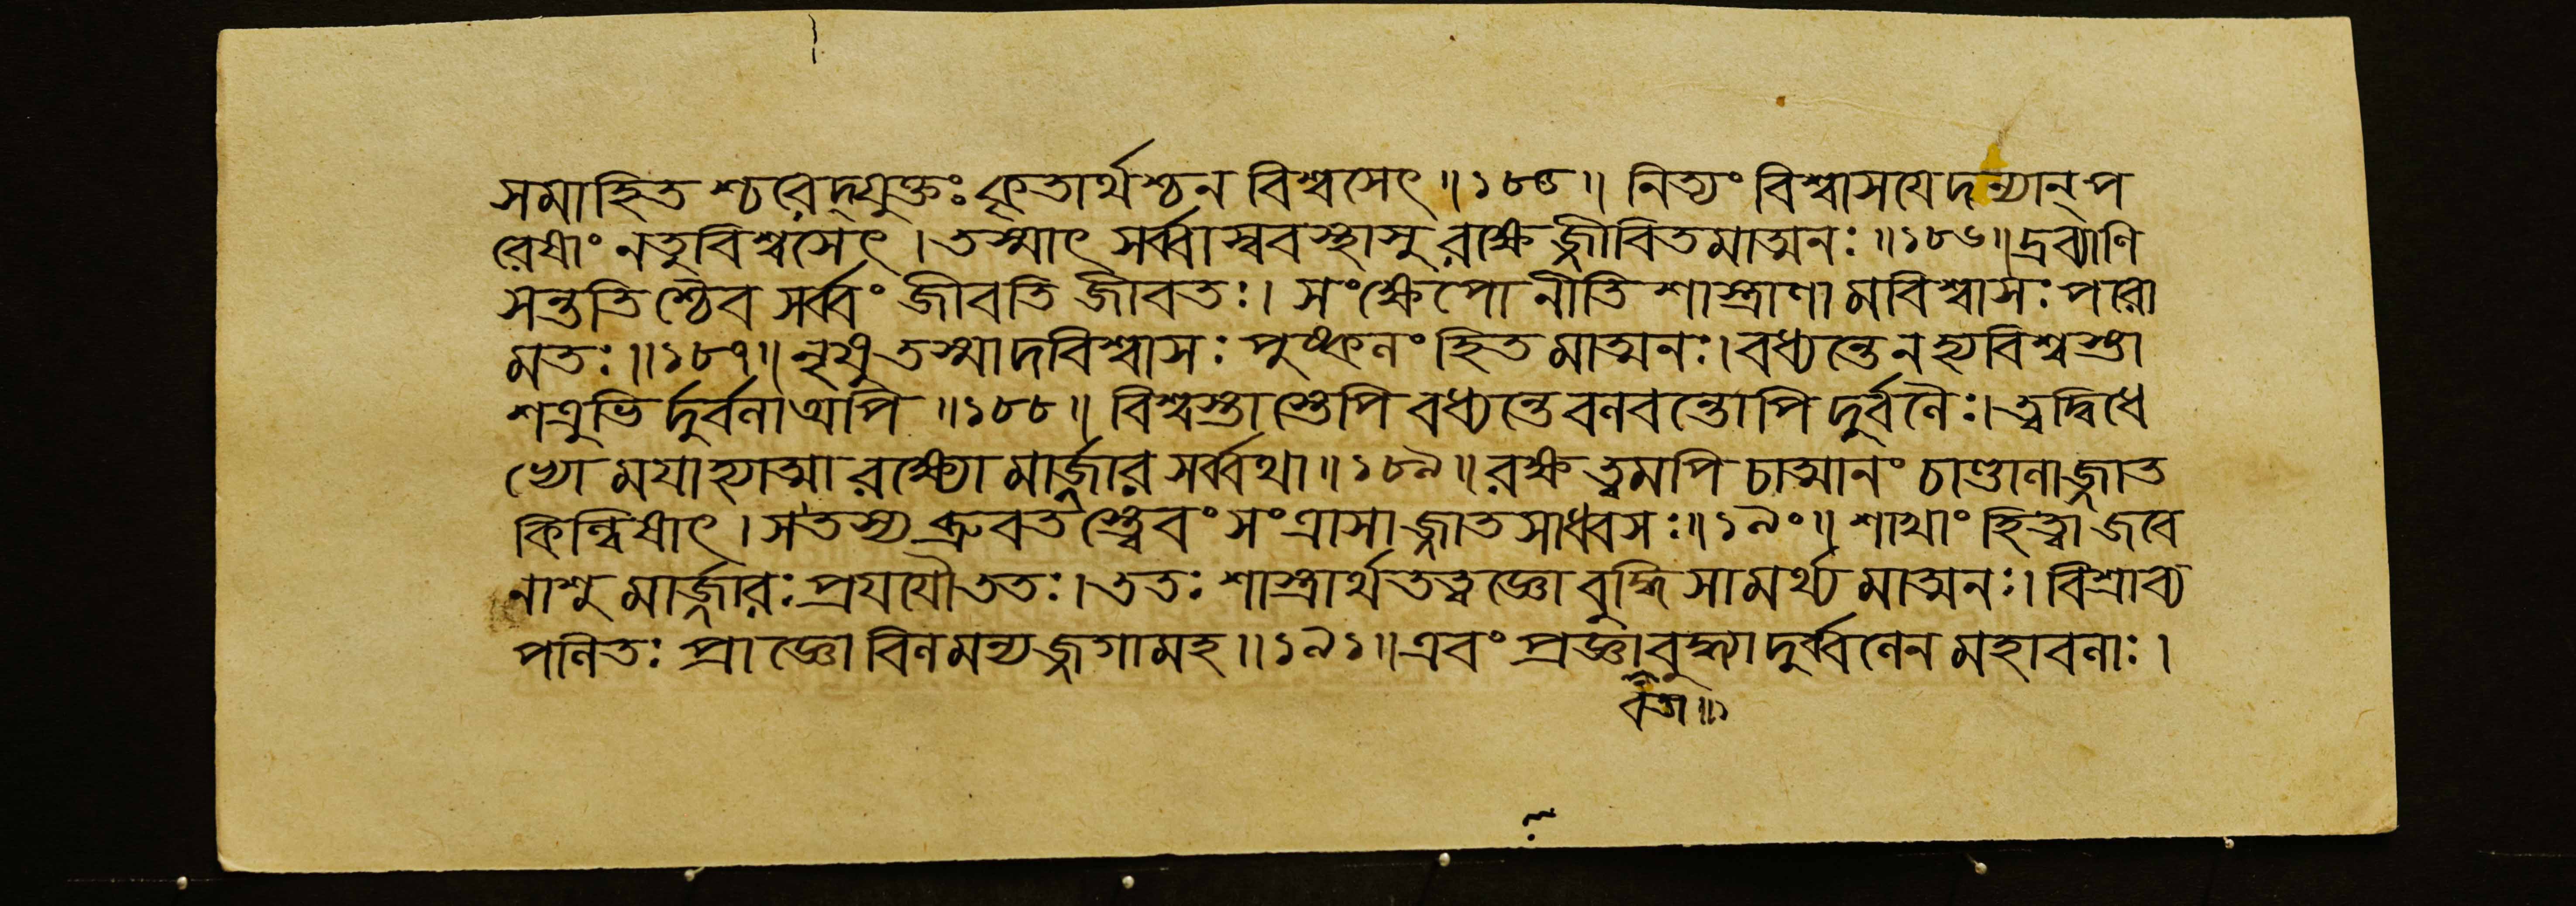 সমাহিতশ্চরেদ্যুক্তঃ কৃতার্থশ্চ ন বিশ্বসেৎ ॥১৮৫॥ নিত্যং বিশ্বাসয়েদন্যান্ প
রেষাং নতু বিশ্বসেৎ । তস্মাৎ সর্ব্বাস্ববস্থাসু রক্ষ জীবিতমাত্মনঃ ॥১৮৬॥ দ্রব্যাণি
সন্ততিশ্চৈব সর্ব্বং জীবতি জীবতঃ । সংক্ষেপো নীতিশাস্ত্রাণামবিশ্বাসঃ পরো
মতঃ ॥১৮৭॥ নৃষু তস্মাদবিশ্বাসঃ পুষ্কলং হিতমাত্মনঃ । বধ্যন্তে ন হ্যবিশ্বস্তা
শত্রুভির্দুর্বলা অপি ॥১৮৮॥ বিশ্বস্তাস্তেপি বধ্যন্তে বলবন্তোপি দুর্বলৈঃ । ত্বদ্বিধে
ভ্যো ময়া হ্যাত্মা রক্ষ্যো মার্জ্জার সর্ব্বথা ॥১৮৯॥ রক্ষ ত্বমপি চাত্মানং চাণ্ডালাজ্জাত
কিল্বিষাৎ । স তস্য ব্রুবতস্ত্বেবং সংত্রাসাজ্জাতসাধ্বসঃ ॥১৯০॥ শাখাং হিত্বা জবে
নাশু মার্জ্জারঃ প্রযযৌ ততঃ । ততঃ শাস্ত্রার্থতত্ত্বজ্ঞো বুদ্ধিসামর্থ্যমাত্মনঃ । বিশ্রাব্য
পলিতঃ প্রাজ্ঞো বিলমন্যজ্জগামহ ॥১৯১॥ এবং প্রজ্ঞাবুদ্ধ্যা দুর্ব্বলেন মহাবলাঃ ।
বতা ॥১